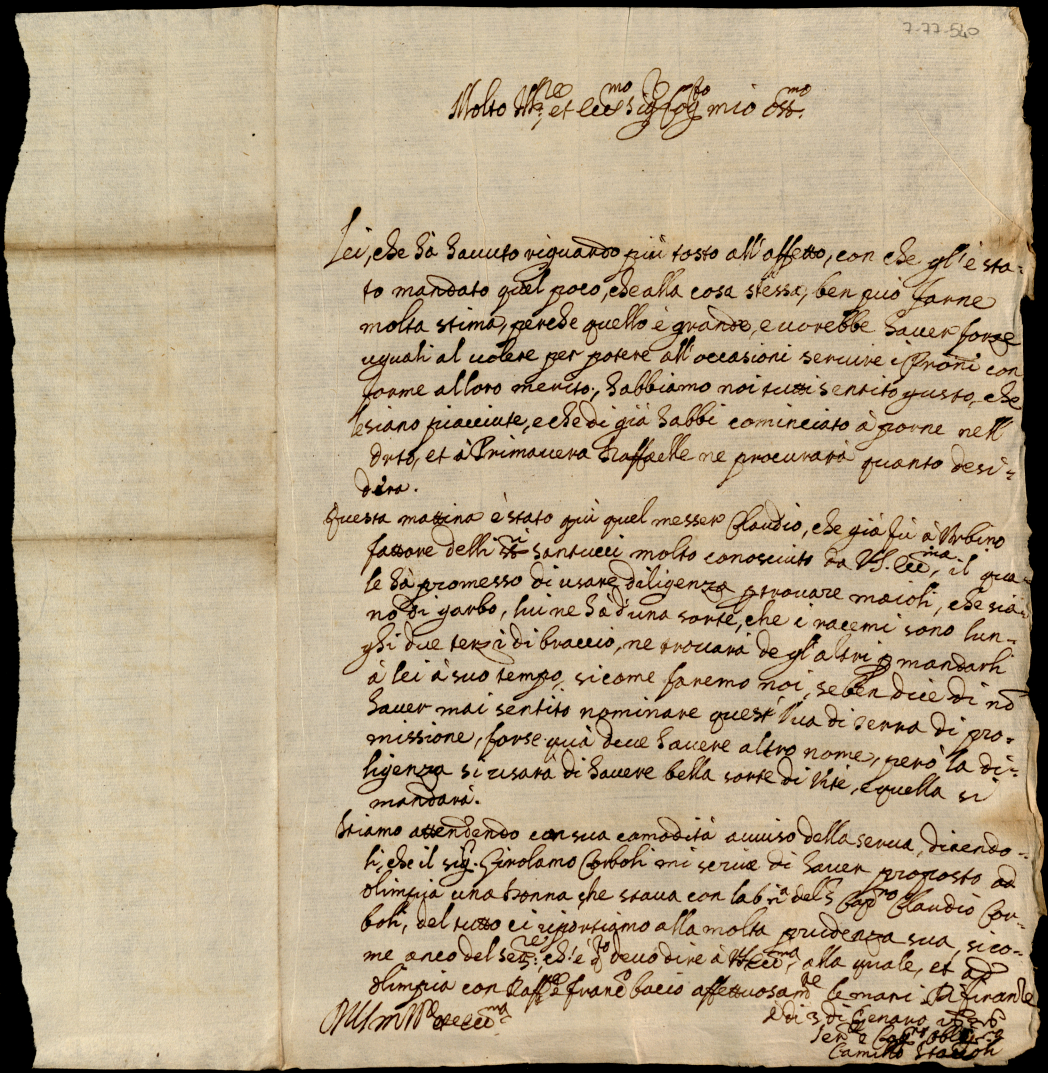 7-77-540
Molto Ill.re et ecc.mo Sig.r Cog.to mio oss.mo
Lei, che hà havuto riguardo più tosto all'affetto, con che gl'è sta-
to mandato quel poco, che alla cosa stessa, ben può farne
molta stima, perche quello è grande, e vorrebbe haver forze
uguali al volere per potere all'occasioni servire i Proni con
forme al loro merito; habbiamo noi tutti sentito gusto, che
le siano piacciute, e che di già habbi cominciato à porne nell
orto, et à Primavera Raffaelle ne procurarà quanto desi-
dera.
Questa mattina è stato quì quel messer Claudio, che già fù à Urbino
fattore delli Santucci molto conosciuto da V.S. ecc.ma, il qua-
le hà promesso di usare diligenza p trovare maioli, che sia-
no di garbo, lui ne hà d'una sorte, che i racemi sono lun-
ghi due terzi di braccio, ne trovarà de gl'altri p mandarli
à lei à suo tempo, si come faremo noi, se ben dice di nō
haver mai sentito nominare quest'Uva di terra di pro-
missione, forse quà deve havere altro nome, però la di-
ligenza si usarà di havere bella sorte di Vite, e quella si
mandarà.
Stiamo attendendo con sua comodità avviso della serva, dicendo-
li, che il sig.r Girolamo Corboli mi scrive di haver proposto ad
olimpia una Donna, che stava con la del Cap.no Claudio Cor-
boli, del tutto ci riportiamo alla molta prudenza sua, si co-
me anco del ch'è q.to devo dire à V.S. ecc.ma, alla quale, et ad
olimpia con Raff.le e franc.o bacio affettuosam.te le mani. Di firenze
à di 3 di Genaro
D V S m Ill.re et ecc.ma
Ser.re e Cog.to
Camillo Staccoli